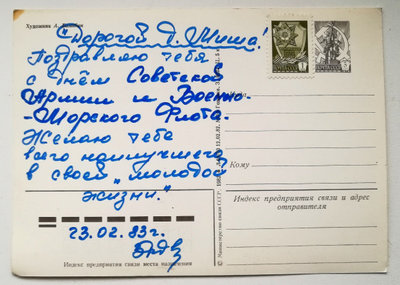 Художник А.
„Дорогой Д. Миша!
Поздравляю тебя
с днём Советской
Армии и Военно-
-Морского Флота.
Желаю тебе
всего наилучшего
в своей „молодой
жизни."
23.02.83г.
Куда
Кому
Индекс предприятия связи и адрес
отправителя
Индекс предприятия связи места назначения
© Министерство связи СССР.